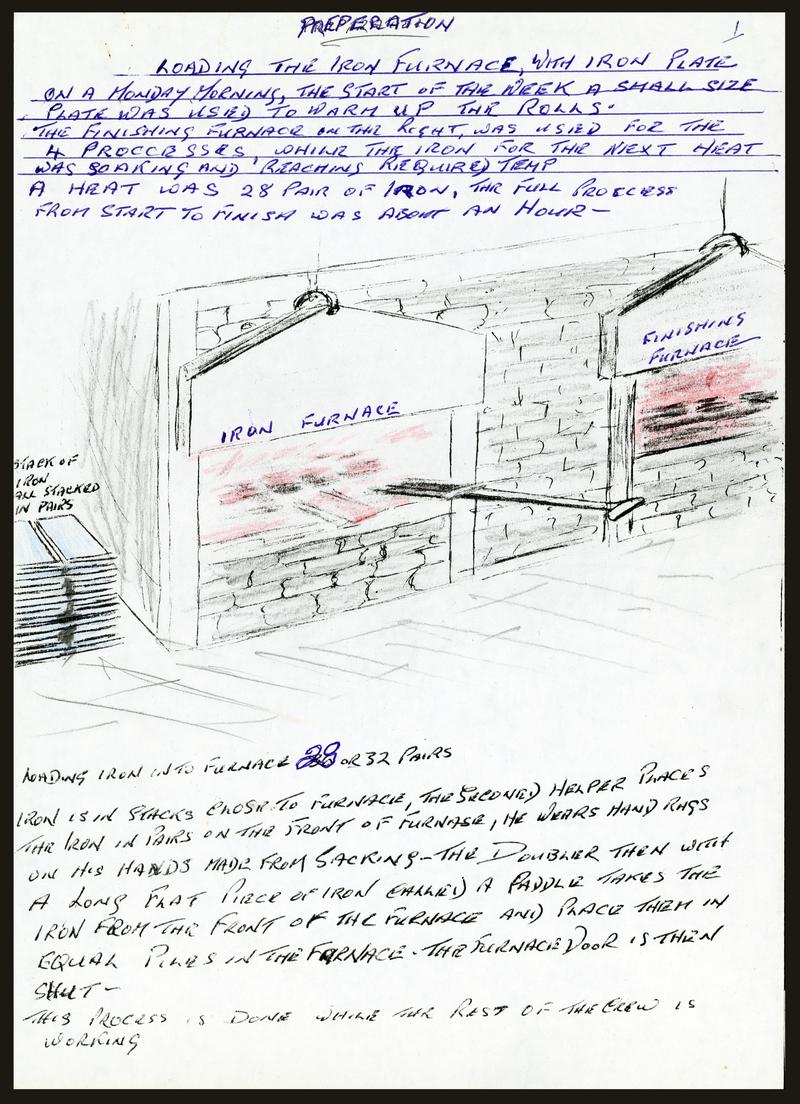 PREPERATION
1
LOADING THE IRON FURNACE, WITH IRON PLATE
ON A MONDAY MORNING, THE START OF THE WEEK A SMALL SIZE
PLATE WAS USED TO WARM UP THE ROLLS.
THE FINISHING FURNACE ON THE RIGHT, WAS USED FOR THE
4 PROCCESSES, WHILE THE IRON FOR THE NEXT HEAT
WAS SOAKING AND REACHING REEQUIRED TEMP
A HEAT WAS 28 PAIR OF IRON, THE FULL PROCCESS
FROM START TO FINISH WAS ABOUT AN HOUR—
FINISHING
FURNACE
IRON FURNACE
STACK OF
IRON
ALL STACKED
IN PAIRS
LOADING IRON INTO FURNACE 28 OR 32 PAIRS
IRON IS IN STACKS CLOSE TO FURNACE, THE SECONED HELPER PLACES
THE IRON IN PAIRS ON THE FRONT OF FURNASE, HE WEARS HAND RAGS
ON HIS HANDS MADE FROM SACKING—THE DOUBLER THEN WITH
A LONG FLAT PIECE OF IRON CALLED A PADDLE TAKES THE
IRON FROM THE FRONT OF THE FURNACE AND PLACE THEM IN
EQUAL PILES IN THE FURNACE. THE FURNACE DOOR IS THEN
SHUT—
THIS PROCESS IS DONE WHILE THE REST OF THE CREW IS
WORKING